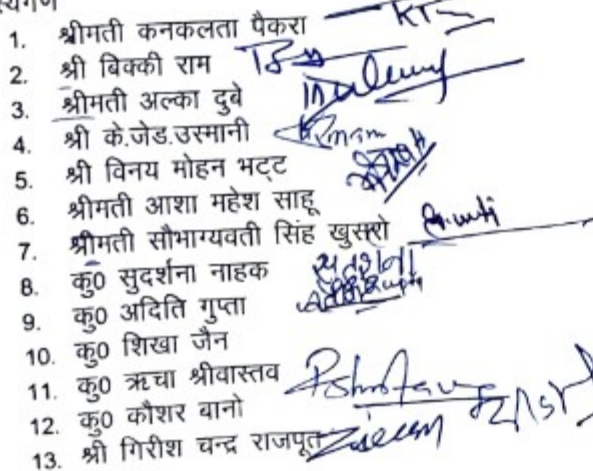 1. श्रीमती कनकलता पैकरा
2. श्री बिक्की राम
3. श्रीमती अल्का दुबे
4. श्री के.जेड.उस्मानी
5. श्री विनय मोहन भट्ट
6. श्रीमती आशा महेश साहू
7. श्रीमती सौभाग्यवती सिंह खुसरो
8. कु0 सुदर्शना नाहक सुदर्शना
9. कु0 अदिति गुप्ता
10. कु0 शिखा जैन
11. कु0 ऋचा श्रीवास्तव
12. कु0 कौशर बानो
13. श्री गिरीश चन्द्र राजपूत